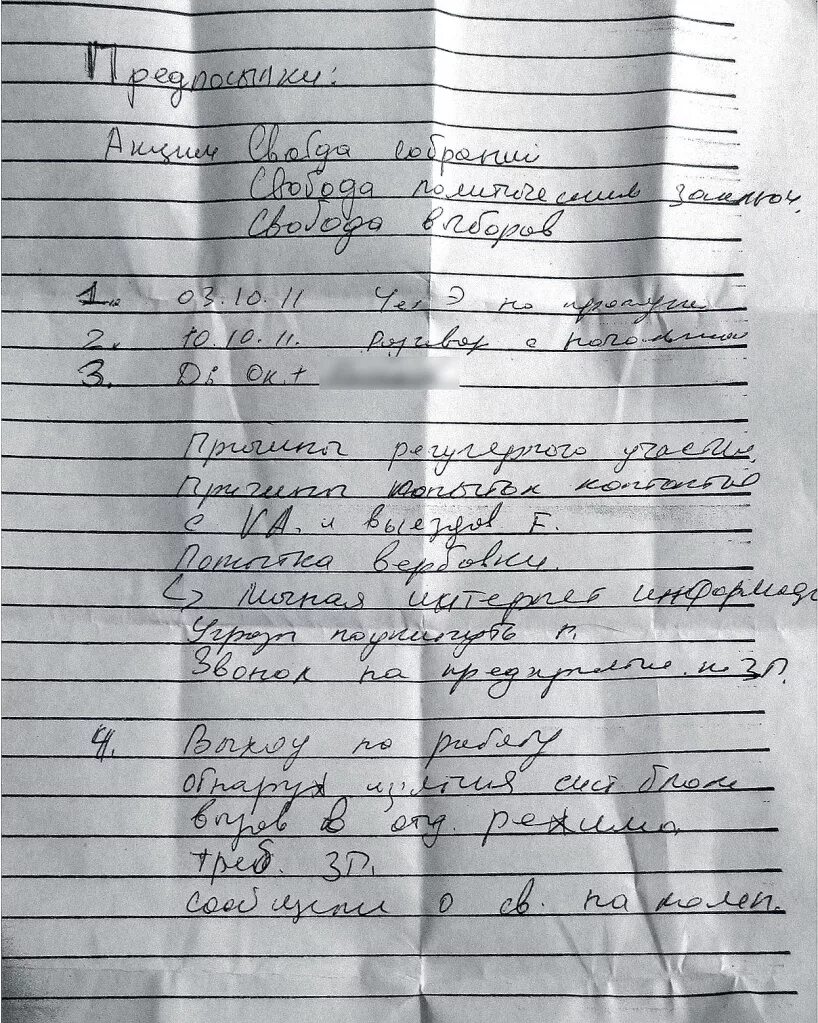 Предпосылки:
Акции Свобода собраний
Свобода политическим заключ.
Свобода выборов
1. 03.10.11 Чел Э на
2. 10.10.11. Разговор с
3. Дв Ок. +
Причины регулярного участия,
Причины попыток контактов
с VA. и выездов F.
Попытка вербовки.
личная интернет информация
Угрозы п.
Звонок на предприятие. и ЗП.
4. Выхожу на работу
обнаруж изъятия сист блока
вызов в отд. режима,
треб. ЗП.
сообщили о св. на